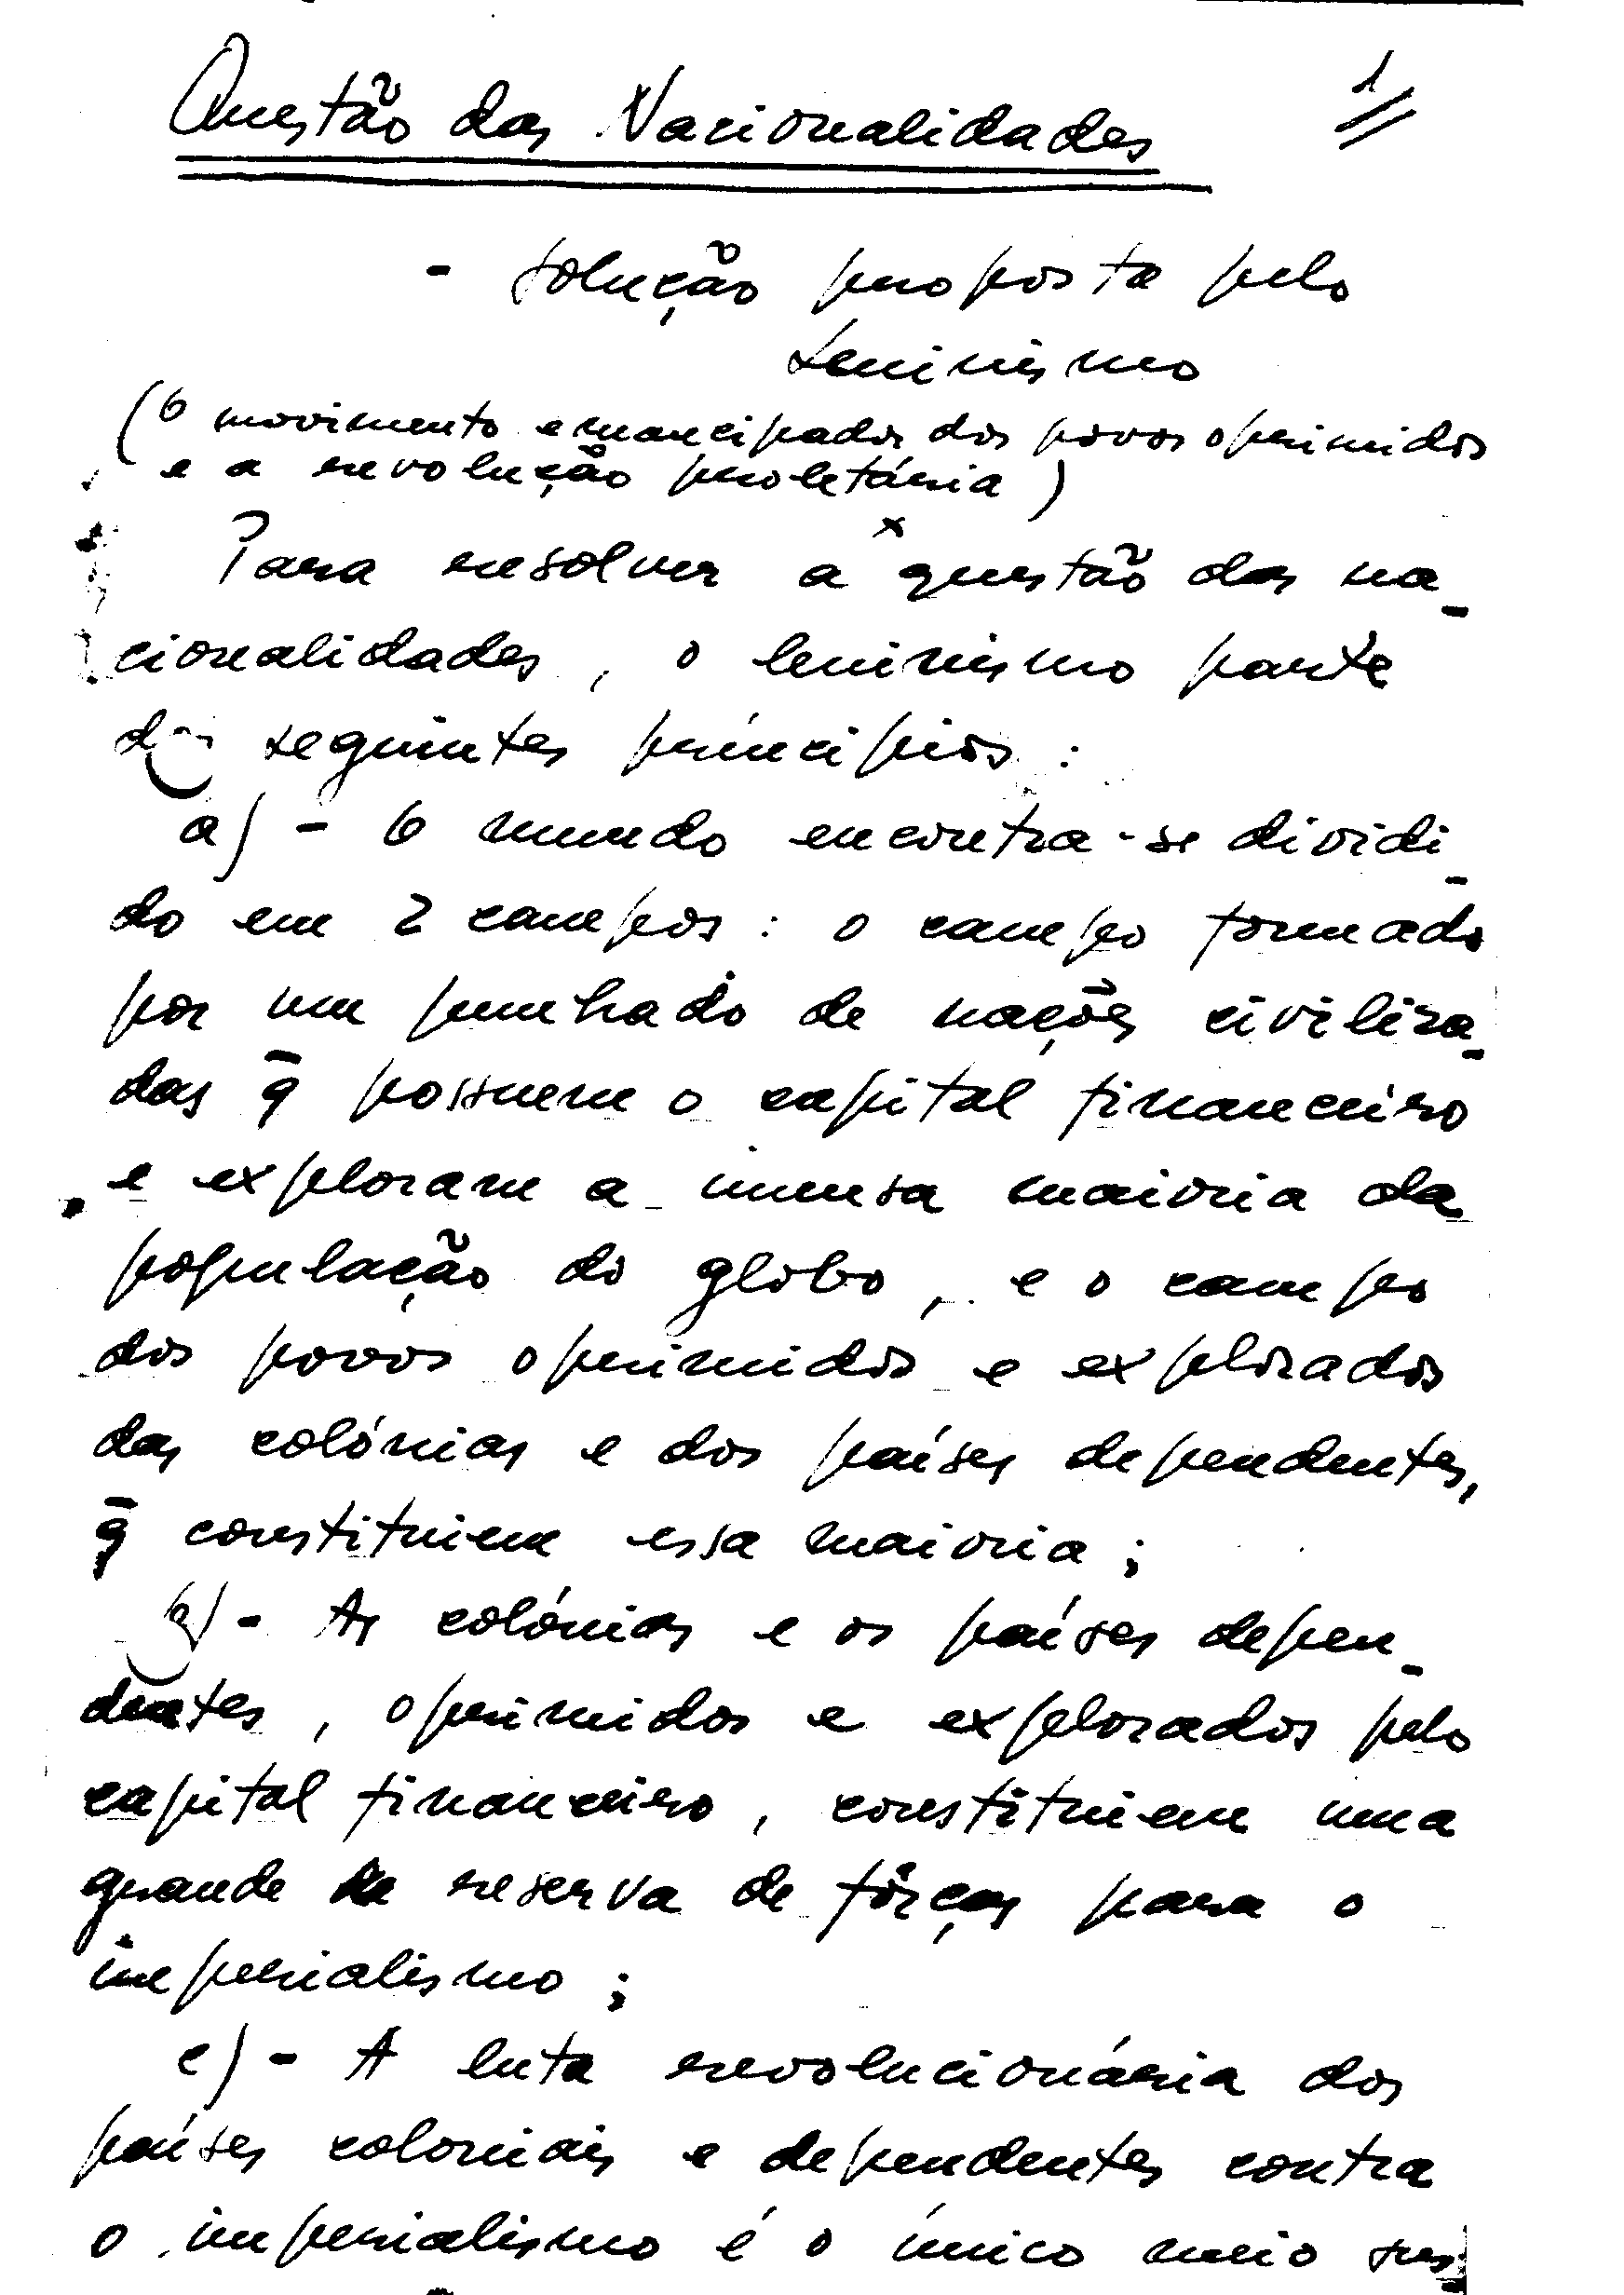 Questão das Nacionalidades
1
- Solução proposta pelo
Leninismo
(O movimento emancipador dos povos oprimidos
e a revolução proletária)
x
Para resolver a questão das na-
cionalidades, o leninismo parte
dos seguintes princípios:
a) - O mundo encontra-se dividi-
do em 2 campos: o campo formado
por um punhado de nações civiliza-
das q̄ possuem o capital financeiro
e exploram a imensa maioria da
população do globo, e o campo
dos povos oprimidos e explorados
das colónias e dos países dependentes,
q̄ constituiem essa maioria;
b) - As colónias e os países depen-
dentes, oprimidos e explorados pelo
capital financeiro, constituiem uma
grande reserva de fôrças para o
imperialismo;
c) - A luta revolucionária dos
países coloniais e dependentes contra
o imperialismo é o único meio sus-